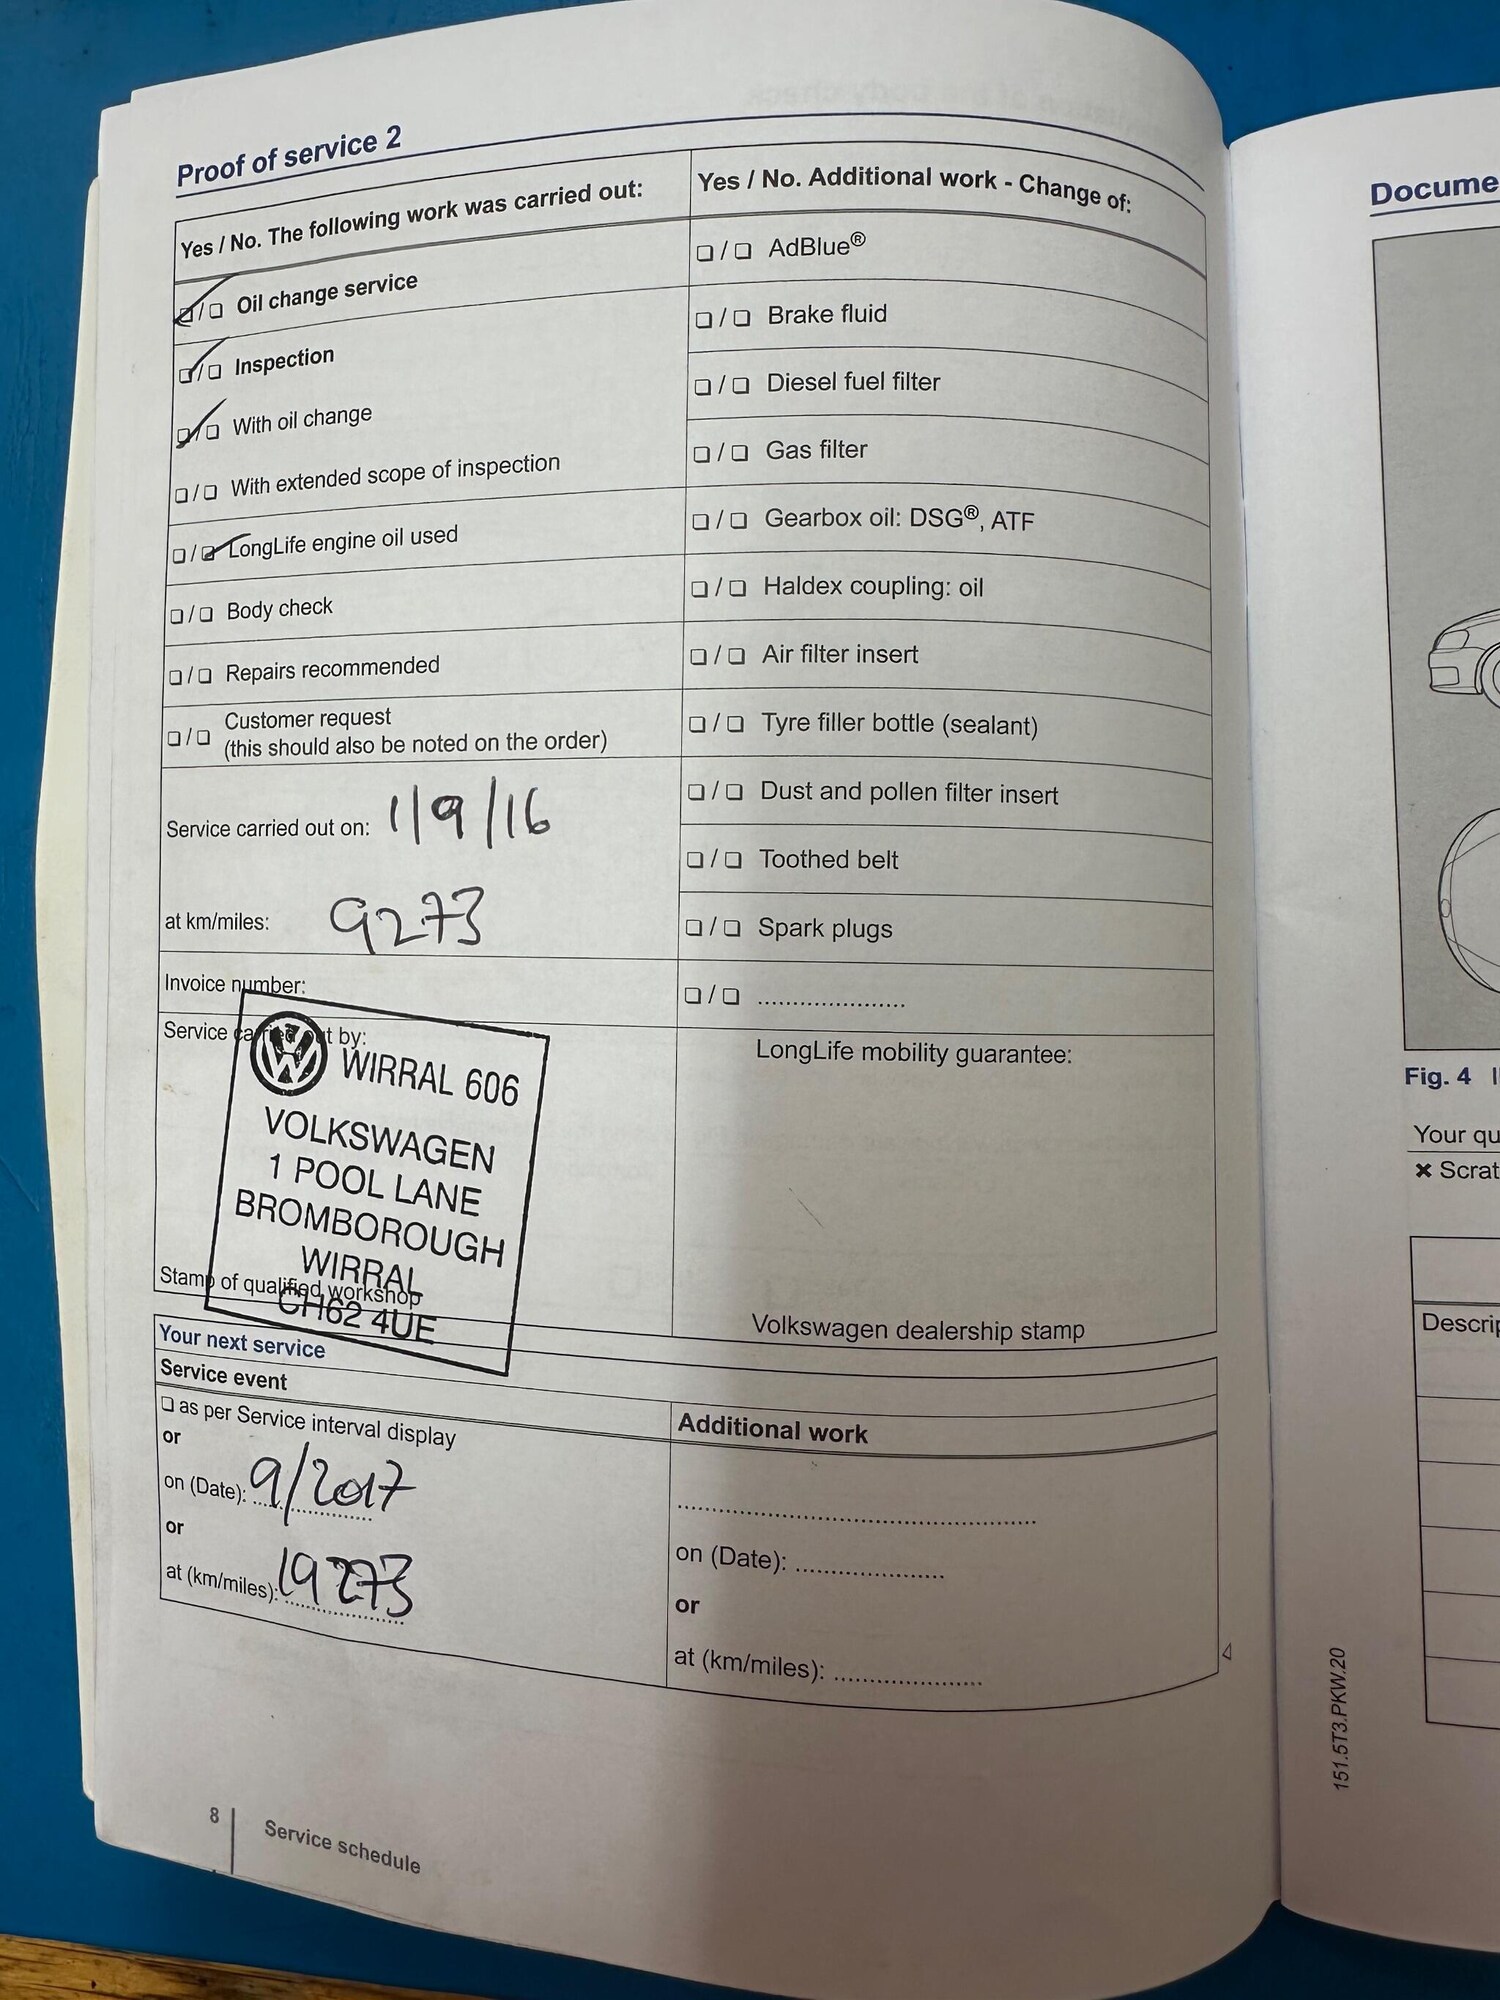 Proof of service 2
Yes / No. The following work was carried out:
❑ / ❑ Oil change service
❑ / ❑ Inspection
❑ / ❑ With oil change
❑ / ❑ With extended scope of inspection
❑ / ❑ LongLife engine oil used
❑ / ❑ Body check
❑ / ❑ Repairs recommended
❑ / ❑ Customer request
(this should also be noted on the order)
Service carried out on: 1/9/16
at km/miles: 9273
Invoice number:
Service carried out by:
WIRRAL 606
VOLKSWAGEN
1 POOL LANE
BROMBOROUGH
WIRRAL
CH62 4UE
Stamp of qualified workshop
Yes / No. Additional work - Change of:
❑ / ❑ AdBlue®
❑ / ❑ Brake fluid
❑ / ❑ Diesel fuel filter
❑ / ❑ Gas filter
❑ / ❑ Gearbox oil: DSG®, ATF
❑ / ❑ Haldex coupling: oil
❑ / ❑ Air filter insert
❑ / ❑ Tyre filler bottle (sealant)
❑ / ❑ Dust and pollen filter insert
❑ / ❑ Toothed belt
❑ / ❑ Spark plugs
❑ / ❑ ......................
LongLife mobility guarantee:
Volkswagen dealership stamp
Your next service
Service event
❑ as per Service interval display
or
on (Date): 9/2017
or
at (km/miles): 19273
Additional work
on (Date): ......................
or
at (km/miles): ......................
8
Service schedule
Docume
Fig. 4
Your qu
× Scrat
Descrip
151.5T3.PKW.20